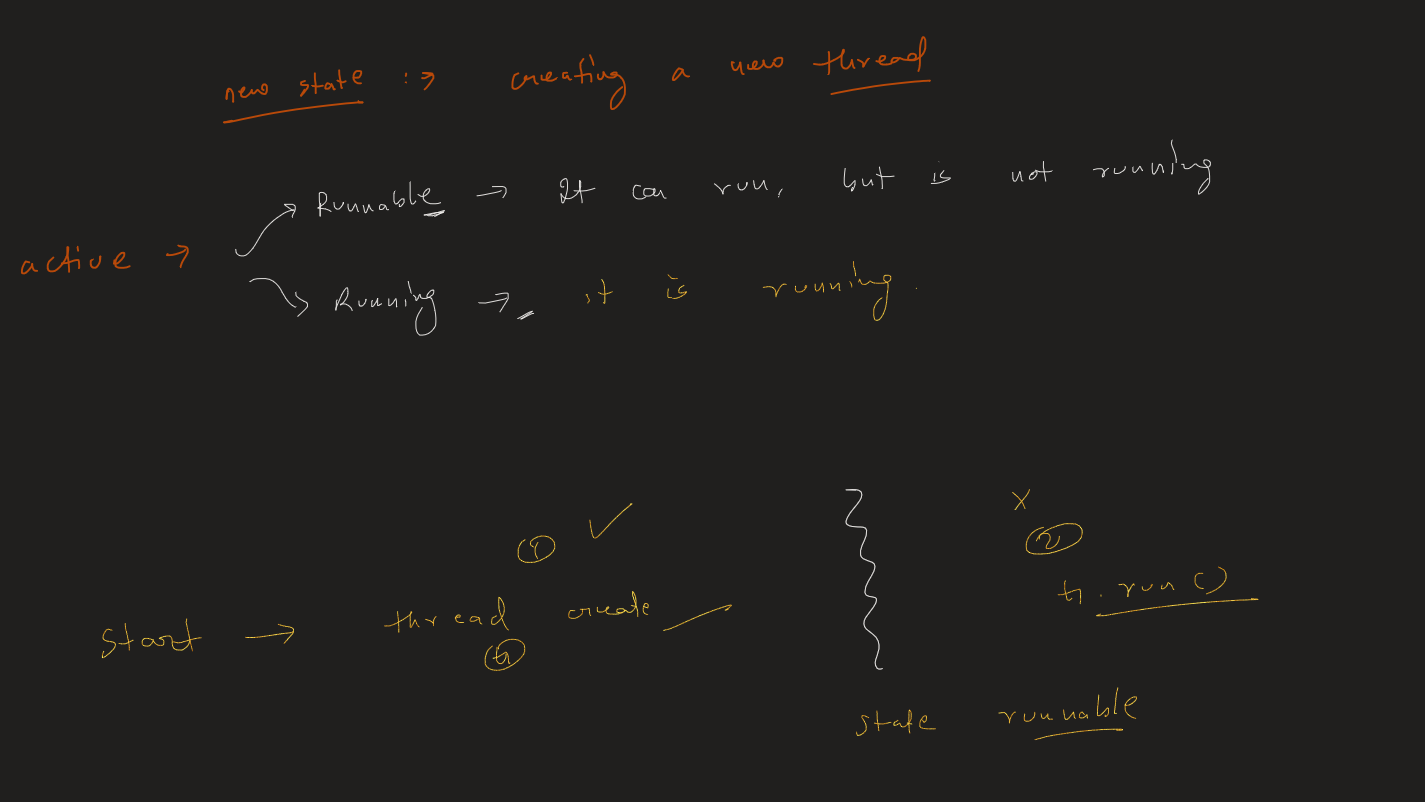 new state :→ creating a new thread
Runnable → It can run, but is not running
active →
Running → it is running.
① ✓
x
②
t1.run()
Start → thread create
t1
state runnable